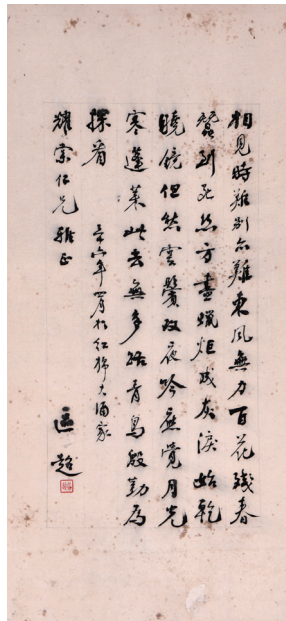 相見時難別亦難東風無力百花殘春
蠶到死絲方盡蠟炬成灰淚始乾
曉鏡但愁雲鬢改夜吟應覺月光
寒蓬萊此去無多路青鳥殷勤為
探看
六年 月於紅 大酒家
耀宗仁兄雅正
區超